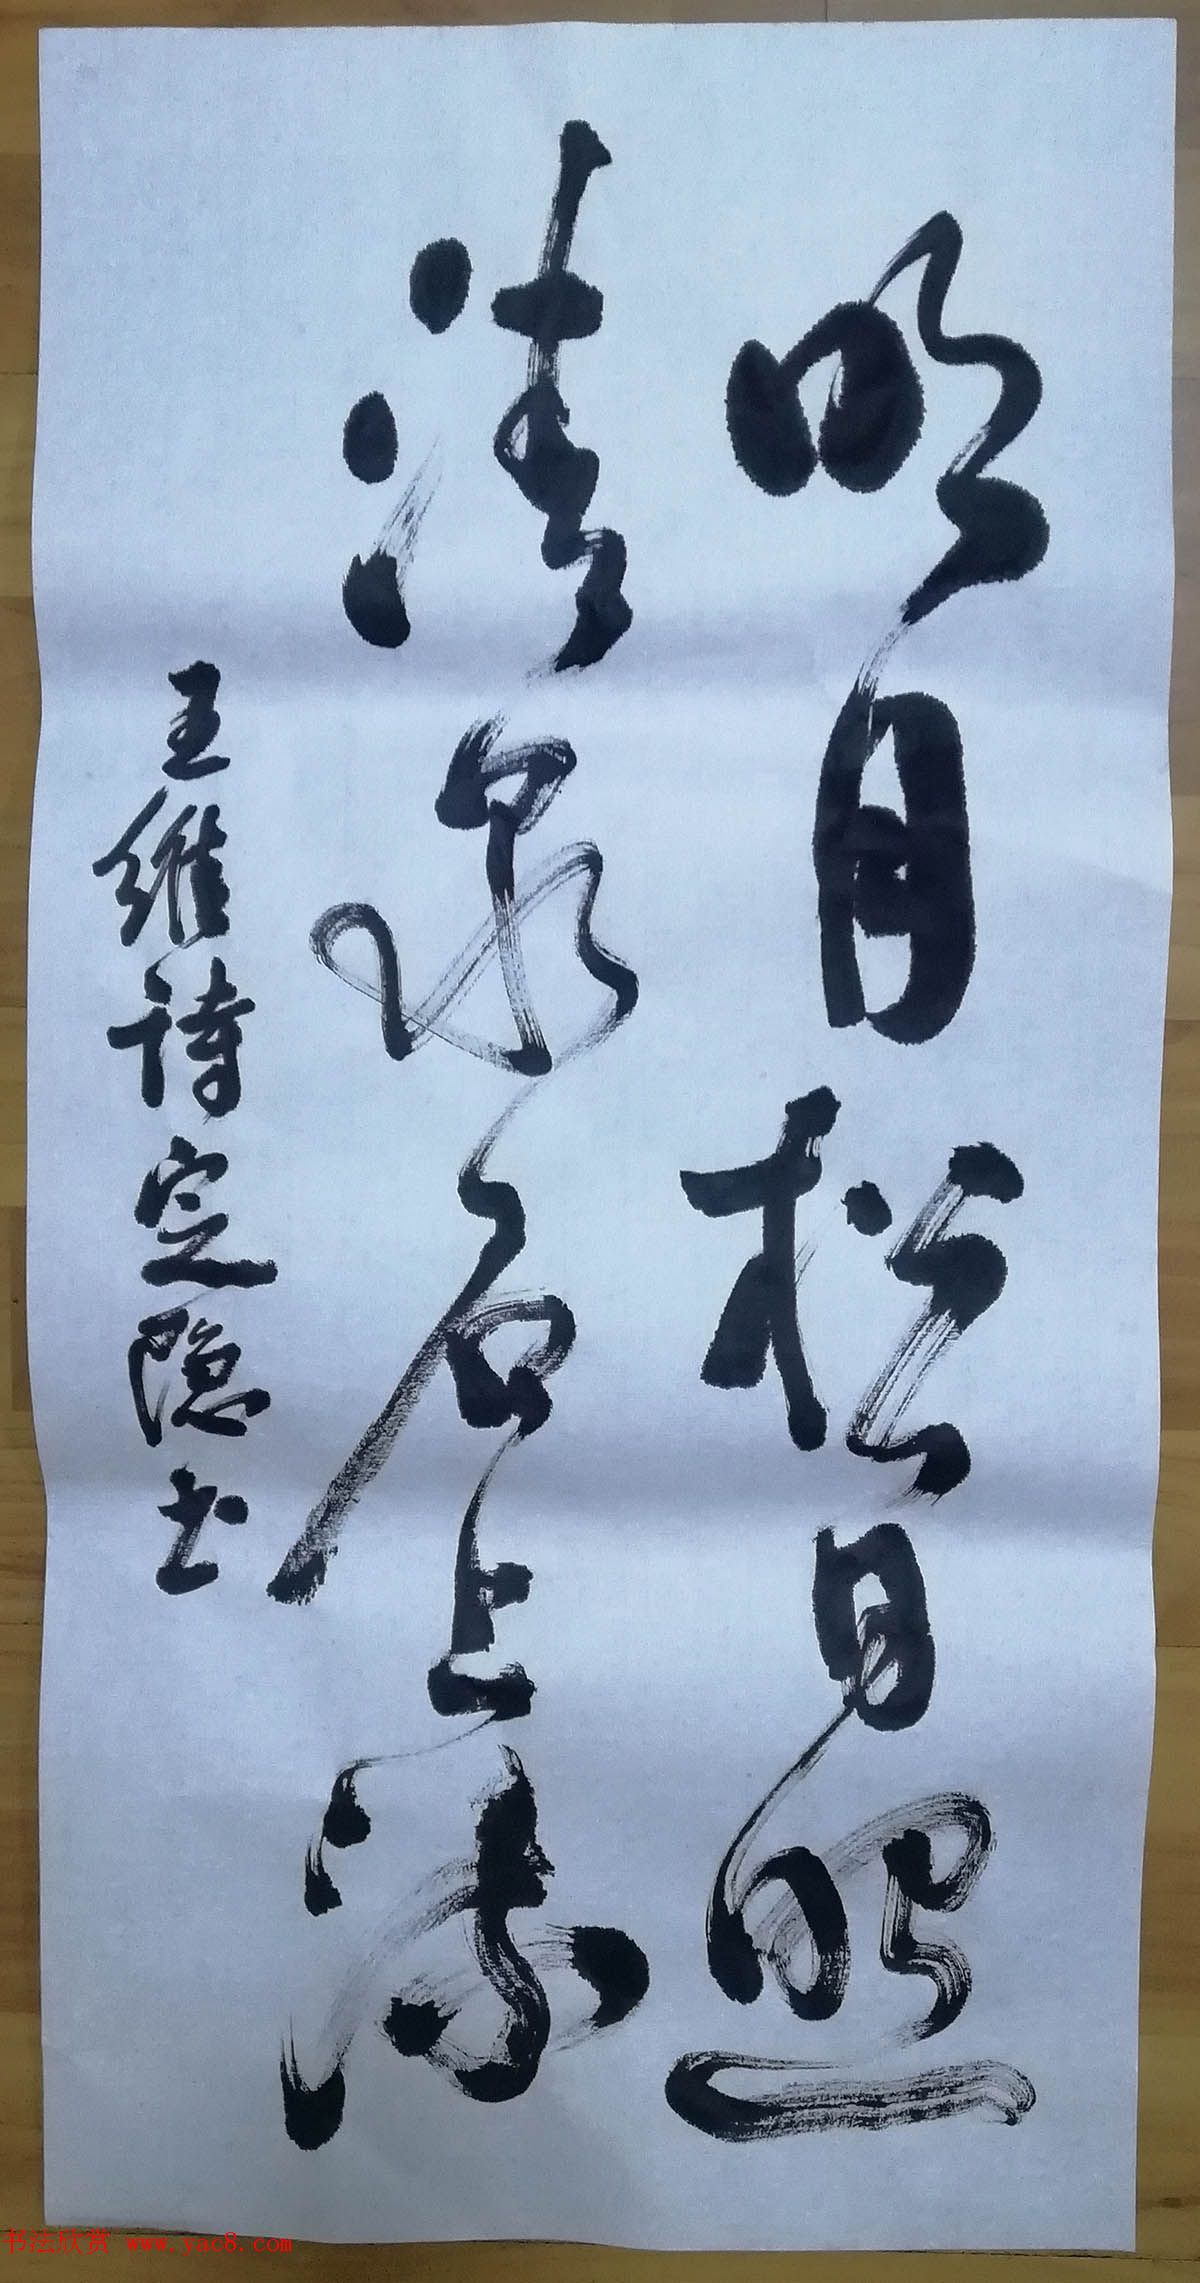 明月松间照
清泉石上流
王维诗定隐书
书法欣赏 www.yac8.com